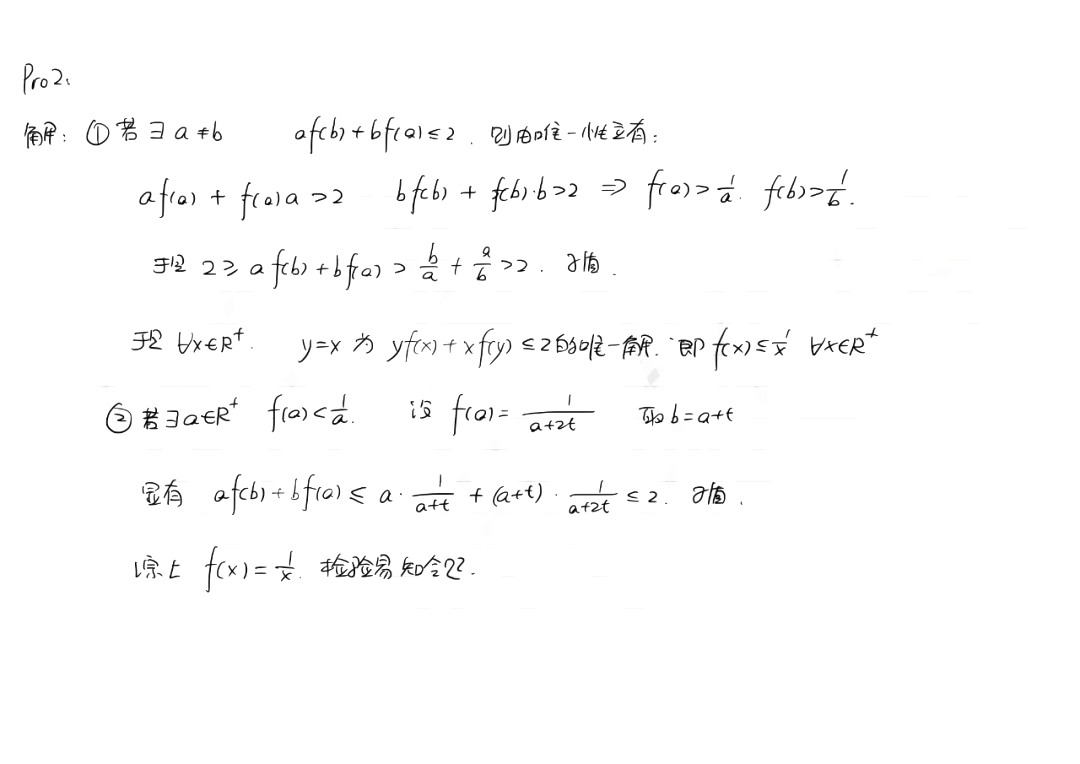 Pro2:
解: ① 若∃a≠b af(b)+bf(a)≤2. 则由唯一性立有:
af(a)+f(a)a>2 bf(b)+f(b)·b>2 ⇒ f(a)>1/a. f(b)>1/b.
于是 2≥af(b)+bf(a)>b/a+a/b>2. 矛盾.
于是 ∀x∈R⁺. y=x 为 yf(x)+xf(y)≤2的唯一解. 即 f(x)≤1/x ∀x∈R⁺
② 若∃a∈R⁺ f(a)<1/a. 设 f(a)=1/(a+2t) 取b=a+t
显有 af(b)+bf(a)≤a·1/(a+t)+(a+t)·1/(a+2t)≤2. 矛盾.
综上 f(x)=1/x. 检验易知合题.